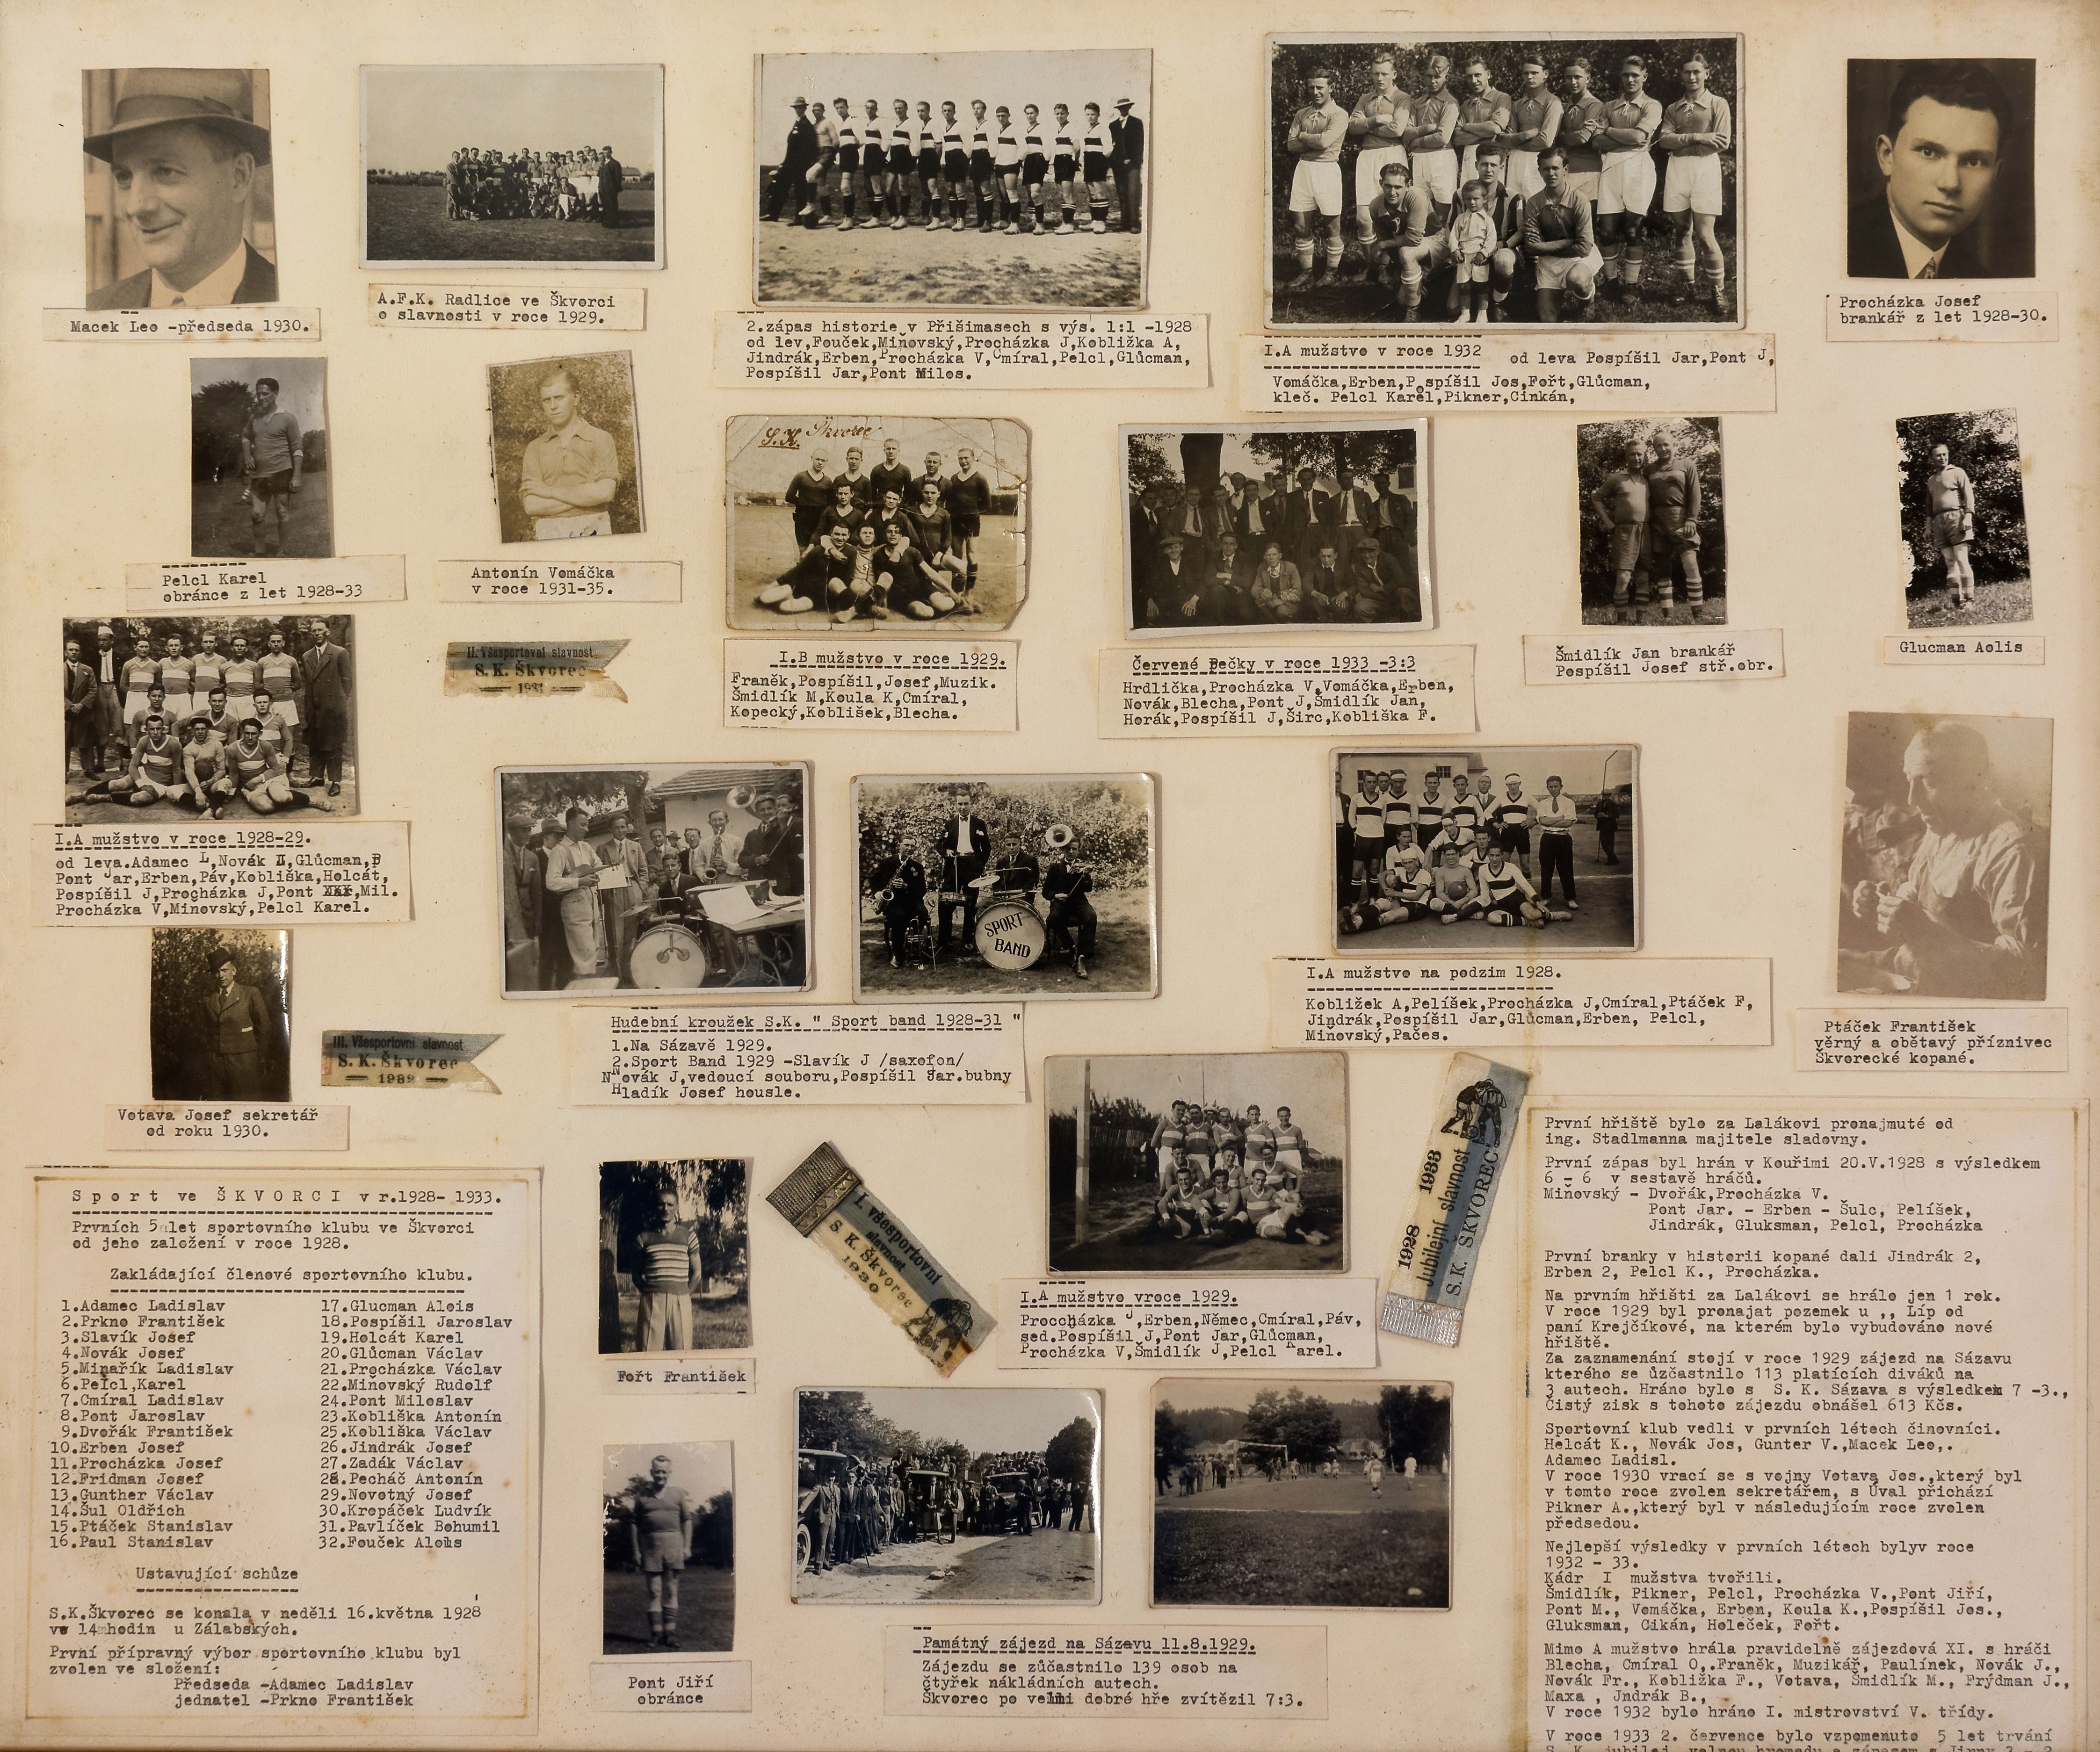 Macek Leo -předseda 1930.
A.F.K. Radlice ve Škvorci
o slavnosti v roce 1929.
2.zápas historie v Přišimasech s výs. 1:1 -1928
od lev,Fouček,Minovský,Procházka J,Kobližka A,
Jindrák,Erben,Procházka V,Cmíral,Pelcl,Glůcman,
Pospíšil Jar,Pont Milos.
I.A mužstvo v roce 1932 od leva Pospíšil Jar,Pont J,
Vomáčka,Erben,Pospíšil Jos,Fořt,Glůcman,
kleč. Pelcl Karel,Pikner,Cinkán,
Procházka Josef
brankář z let 1928-30.
Pelcl Karel
obránce z let 1928-33
Antonín Vomáčka
v roce 1931-35.
S.K. Škvorec
I.B mužstvo v roce 1929.
Franěk,Pospíšil,Josef,Muzik.
Šmidlík M,Koula K,Cmíral,
Kopecký,Koblišek,Blecha.
Červené Pečky v roce 1933 -3:3
Hrdlička,Procházka V,Vomáčka,Erben,
Novák,Blecha,Pont J,Šmidlík Jan,
Horák,Pospíšil J,Širc,Kobliška F.
Šmidlík Jan brankář
Pospíšil Josef stř.obr.
Glucman Aolis
II. Všesportovní slavnost
S. K. Škvorec
1931
I.A mužstvo v roce 1928-29.
od leva.Adamec L,Novák II,Glůcman,P
Pont Jar,Erben,Páv,Kobliška,Holcát,
Pospíšil J,Procházka J,Pont Mil.
Procházka V,Minovský,Pelcl Karel.
SPORT
BAND
Hudební kroužek S.K. " Sport band 1928-31 "
1.Na Sázavě 1929.
2.Sport Band 1929 -Slavík J /saxofon/
Novák J,vedoucí souboru,Pospíšil Jar.bubny
Hladík Josef housle.
I.A mužstvo na podzim 1928.
Kobližek A,Pelíšek,Procházka J,Cmíral,Ptáček F,
Jindrák,Pospíšil Jar,Glůcman,Erben, Pelcl,
Minovský,Pačes.
Ptáček František
věrný a obětavý příznivec
Škvorecké kopané.
III. Všesportovní slavnost
S. K. Škvorec
1932
Votava Josef sekretář
od roku 1930.
Sport ve ŠKVORCI v r.1928- 1933.
Prvních 5 let sportovního klubu ve Škvorci
od jeho založení v roce 1928.
Zakládající členové sportovního klubu.
1.Adamec Ladislav
2.Prkno František
3.Slavík Josef
4.Novák Josef
5.Minařík Ladislav
6.Pelcl,Karel
7.Cmíral Ladislav
8.Pont Jaroslav
9.Dvořák František
10.Erben Josef
11.Procházka Josef
12.Fridman Josef
13.Gunther Václav
14.Šul Oldřich
15.Ptáček Stanislav
16.Paul Stanislav
17.Glucman Alois
18.Pospíšil Jaroslav
19.Holcát Karel
20.Glůcman Václav
21.Procházka Václav
22.Minovský Rudolf
24.Pont Miloslav
23.Kobliška Antonín
25.Kobliška Václav
26.Jindrák Josef
27.Zadák Václav
28.Pecháč Antonín
29.Novotný Josef
30.Kropáček Ludvík
31.Pavlíček Bohumil
32.Fouček Alois
Ustavující schůze
S.K.Škvorec se konala v neděli 16.května 1928
ve 14 hodin u Zálabských.
První přípravný výbor sportovního klubu byl
zvolen ve složení:
Předseda -Adamec Ladislav
jednatel -Prkno František
Fořt František
I. všesportovní
slavnost
S. K. Škvorec
1930
Pont Jiří
obránce
I.A mužstvo vroce 1929.
Procházka J,Erben,Němec,Cmíral,Páv,
sed.Pospíšil J,Pont Jar,Glůcman,
Procházka V,Šmidlík J,Pelcl Karel.
1928 1933
Jubilejní slavnost
S.K. ŠKVOREC
Památný zájezd na Sázavu 11.8.1929.
Zájezdu se zůčastnilo 139 osob na
čtyřek nákladních autech.
Škvorec po velmi dobré hře zvítězil 7:3.
První hřiště bylo za Lalákovi pronajmuté od
ing. Stadlmanna majitele sladovny.
První zápas byl hrán v Kouřimi 20.V.1928 s výsledkem
6 - 6 v sestavě hráčů.
Miňovský - Dvořák,Procházka V.
Pont Jar. - Erben - Šulc, Pelíšek,
Jindrák, Gluksman, Pelcl, Procházka
První branky v historii kopané dali Jindrák 2,
Erben 2, Pelcl K., Procházka.
Na prvním hřišti za Lalákovi se hrálo jen 1 rok.
V roce 1929 byl pronajat pozemek u ,, Líp od
paní Krejčíkové, na kterém bylo vybudováno nové
hřiště.
Za zaznamenání stojí v roce 1929 zájezd na Sázavu
kterého se ůzčastnilo 113 platících diváků na
3 autech. Hráno bylo s S. K. Sázava s výsledkem 7 -3.,
Čistý zisk s tohoto zájezdu obnášel 613 Kčs.
Sportovní klub vedli v prvních létech činovníci.
Helcát K., Novák Jos, Gunter V.,Macek Leo,.
Adamec Ladisl.
V roce 1930 vrací se s vojny Votava Jos.,který byl
v tomto roce zvolen sekretářem, s Úval přichází
Pikner A.,který byl v následujícím roce zvolen
předsedou.
Nejlepší výsledky v prvních létech bylyv roce
1932 - 33.
Kádr I mužstva tvořili.
Šmidlík, Pikner, Pelcl, Procházka V.,Pont Jiří,
Pont M., Vomáčka, Erben, Koula K.,Pospíšil Jos.,
Gluksman, Cikán, Holeček, Fořt.
Mimo A mužstvo hrála pravidelně zájezdová XI. s hráči
Blecha, Cmíral O,.Franěk, Muzikář, Paulínek, Novák J.,
Novák Fr., Kobližka F., Votava, Šmidlík M., Frýdman J.,
Maxa , Jndrák B.,
V roce 1932 bylo hráno I. mistrovství V. třídy.
V roce 1933 2. července bylo vzpomenuto 5 let trvání